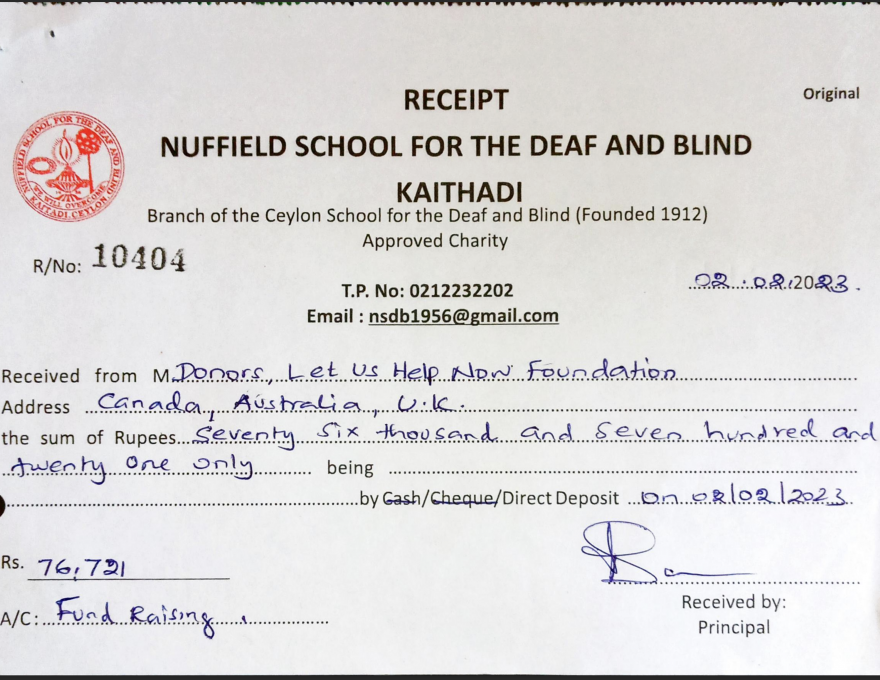 Original
RECEIPT
NUFFIELD SCHOOL FOR THE DEAF AND BLIND
KAITHADI
Branch of the Ceylon School for the Deaf and Blind (Founded 1912)
Approved Charity
NUFFIELD SCHOOL FOR THE DEAF AND BLIND
WE WILL OVERCOME
KAITADI CEYLON
R/No: 10404
02.02.2023.
T.P. No: 0212232202
Email : nsdb1956@gmail.com
Received from M Donors, Let Us Help Now Foundation
Address Canada, Australia, U.K.
the sum of Rupees Seventy Six thousand and Seven hundred and
twenty one only being
by Cash/Cheque/Direct Deposit on 02/02/2023
Rs. 76,721
A/C: Fund Raising.
Received by:
Principal